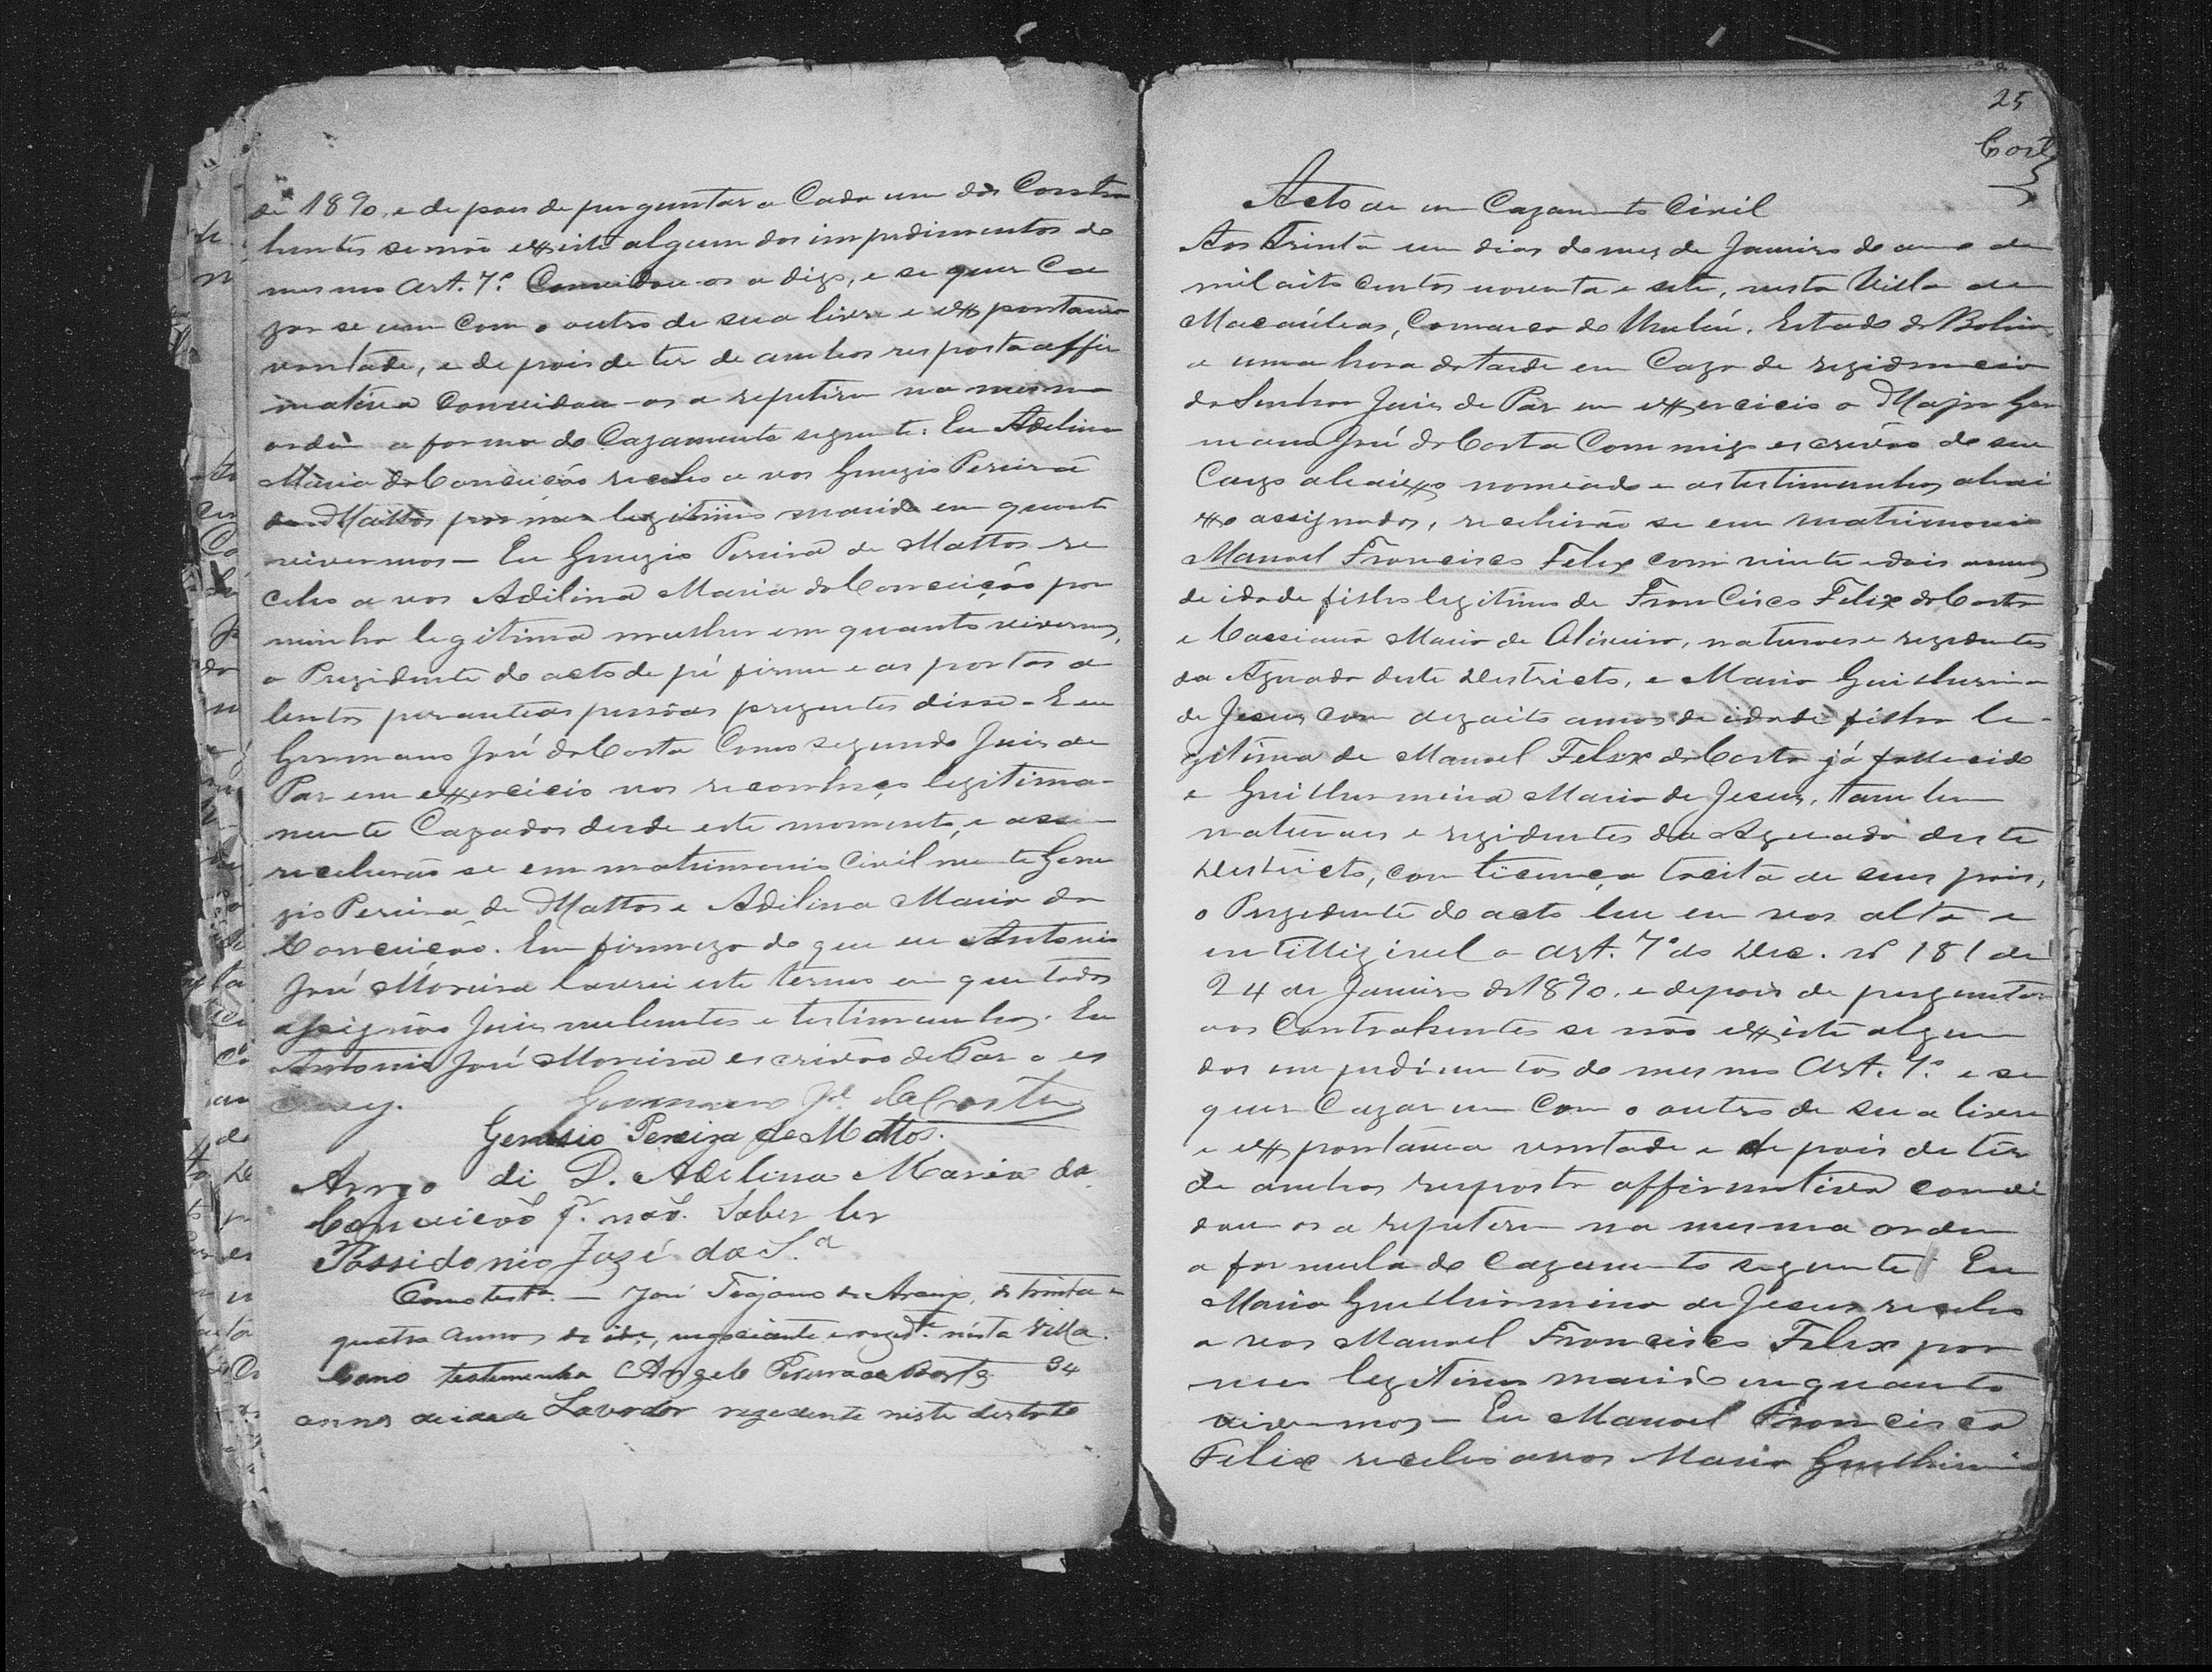 de 1890, e depois de perguntar a Cada um dos Contra
hentes se não existe algum dos impedimentos do
mesmo Art. 7.º Convidou-os a digo, e se quer Ca
zar se um com o outro de sua livre e expontanea
vontade, e depois de ter de ambos resposta affir
mativa Convidou-os a repitirem na mesma
ordem a forma do Cazamento seguinte: Eu Adelina
Maria da Conceição recebo a vos Genezio Pereira
de Mattos por meu legitimo marido em quanto
vivermos — Eu Genezio Pereira de Mattos re
cebo a vos Adilina Maria da Conceição por
minha legitima mulher em quanto vivermos,
o Prezidente do acto de pé firme e as portas a
bertas perante as pessôas prezentes disse - E eu
Germano José da Costa Como segundo Juis de
Pas em exercicio vos reconheço legitima-
mente Cazados desde este momento, e assim
receberão se em matrimonio Civil mente Gene
zio Pereira de Mattos e Adilina Maria da
Conceição. Em firmeza do que eu Antonio
José Moreira lavrei este termo em que todos
assignão Juis nubentes e testimunhas. Eu
Antonio José Moreira escrivão de Pas o es
crevy.
Germano Jé. da Costa
Genesio Pereira de Mattos.
Arrogo di D. Adelina Maria da
Conceicaõ pr. naõ. Saber ler
Possidonio Jozé da S.a
Como testa. — José Trajano de Araujo, de trinta e
quatro annos de ide, negociante, e rezide. nésta Villa.
Como testemunha Angelo Pereira da Costa 34
annos de idade Lavrador rezedente neste destrito
25
Costa
Acto de um Cazamento Civil
Aos Trinta um dias do mez de Janeiro do anno de
mil oito centos noventa e sete, nesta Villa de
Macaúbas, Comarca do Urubú, Estado da Bahia,
a uma hora da tarde em Caza de rezidencia
do Senhor Juis de Pas em exercicio o Major Ger
mano José da Costa Commigo escrivão de seu
Cargo abaixo nomeado e as testimunhas abai
xo assignados, receberão se em matrimonio
Manoel Francisco Felix com vinte e dois annos
de idade filho legitimo de Francisco Felix da Costa
e Cassiana Maria de Oliveira, naturaes e rezidentes
da Aguada deste Destricto, e Maria Guilhermina
de Jesus com dezoito annos de idade filha le-
gitima de Manoel Felix da Costa já fallecido
e Guilhermina Maria de Jesus, tambem
naturaes e rezidentes da Aguada deste
Destricto, com licença tacita de seus pais,
o Prezidente do acto leu em vos alta e
intilligivel o Art. 7º do Dec. nº 181 de
24 de Janeiro de 1890, e depois de perguntar
aos Contrahentes se não existe algum
dos impedimentos do mesmo Art. 7.º e se
quer Cazar um com o outro de sua livre
e expontanea vontade e depois de ter
de ambos resposta affirmativa convi
dou os a repiterem na mesma ordem
a formula do Cazamento seguinte: Eu
Maria Guilhermina de Jesus recebo
a vos Manoel Francisco Felix por
meu legitimo marido enquanto
vivermos — Eu Manoel Francisco
Felix recebo a vos Maria Guilhermi